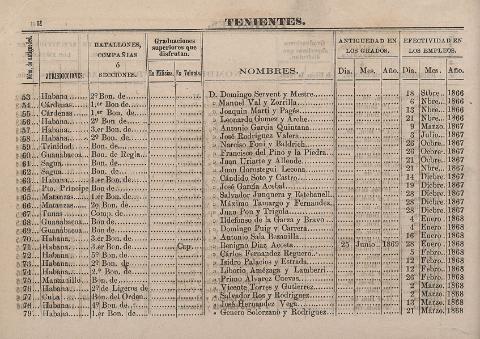 TENIENTES.
Núm. de antigüedad.
JURISDICCIONES.
BATALLONES,
COMPAÑIAS
ó
SECCIONES.
Graduaciones
superiores que
disfrutan.
En Milicias. En Volunts.
NOMBRES.
ANTIGUEDAD EN
LOS GRADOS.
Dia. Mes. Año.
EFECTIVIDAD EN
LOS EMPLEOS.
Dia. Mes. Año.
53 Habana 2º Bon. de D. Domingo Servent y Mestre 18 Sbre. 1866
54 Cárdenas 1.er Bon de » Manuel Val y Zorrilla 6 Nbre. 1866
55 Cárdenas 1.er Bon. de » Joaquin Marti y Pagés 13 Nbre. 1866
56 Habana 2º Bon. de » Leonardo Gomez y Arche 21 Nbre. 1866
57 Habana 3.er Bon. de » Antonio Garcia Quintana 9 Marzo. 1867
58 Habana 2º Bon. de » José Rodriguez Valera 3 Julio. 1867
59 Trinidad Bon. de » Narciso Foni y Bildrich 26 Ocbre. 1867
60 Guanabacoa Bon. de Regla » Francisco del Pino y la Piedra 26 Ocbre. 1867
61 Sagua Bon. de » Juan Uriarte y Allende 21 Ocbre. 1867
62 Sagua Bon. de » Juan Gorustegui Lecona 21 Nbre. 1867
63 Habana 1.er Bon. de » Cándido Soto y Castro 14 Dibre. 1867
64 Pto. Príncipe Bon. de » José García Acebal 19 Dibre. 1867
65 Matanzas 1.er Bon. de » Salvador Junquera y Estébanell 28 Dibre. 1867
66 Matanzas 2º Bon. de » Máximo Tavargo y Fernandez 28 Dibre. 1867
67 Tunas Comp. de » Juan Pon y Trigola 28 Dibre. 1867
68 Guanabacoa Bon. de » Ildefonso de la Garza y Bravo 4 Enero. 1868
69 Guanabacoa Bon. de » Domingo Puig y Carrera 4 Enero. 1868
70 Habana 3.er Bon. de » Antonio Sala Bosanilla 16 Enero. 1868
71 Habana 3.er Bon. de Cap. » Benigno Diaz Acosta 25 Junio. 1869 28 Enero. 1868
72 Habana 5º Bon. de » Cárlos Fernandez Reguero 5 Febro. 1868
73 Habana 2º Bon. de » Isidro Palacios y Estrada 12 Febro. 1868
74 Habana 2.º Bon. de » Liborio Amézaga y Lamberri 12 Febro. 1868
75 Manzanillo Bon. de » Primo Alvarez Cuevas 26 Febro. 1868
76 Habana 2º de Ligeros de » Vicente Torres y Gutierrez 2 Marzo. 1868
77 Cuba Bon. del Orden » Salvador Ros y Rodriguez 2 Marzo. 1868
78 Habana 4º Bon. de » José Hernandez Vega 13 Marzo. 1868
79 Habana 1.er Bon. de » Genaro Solorzano y Rodriguez 21 Marzo. 1868